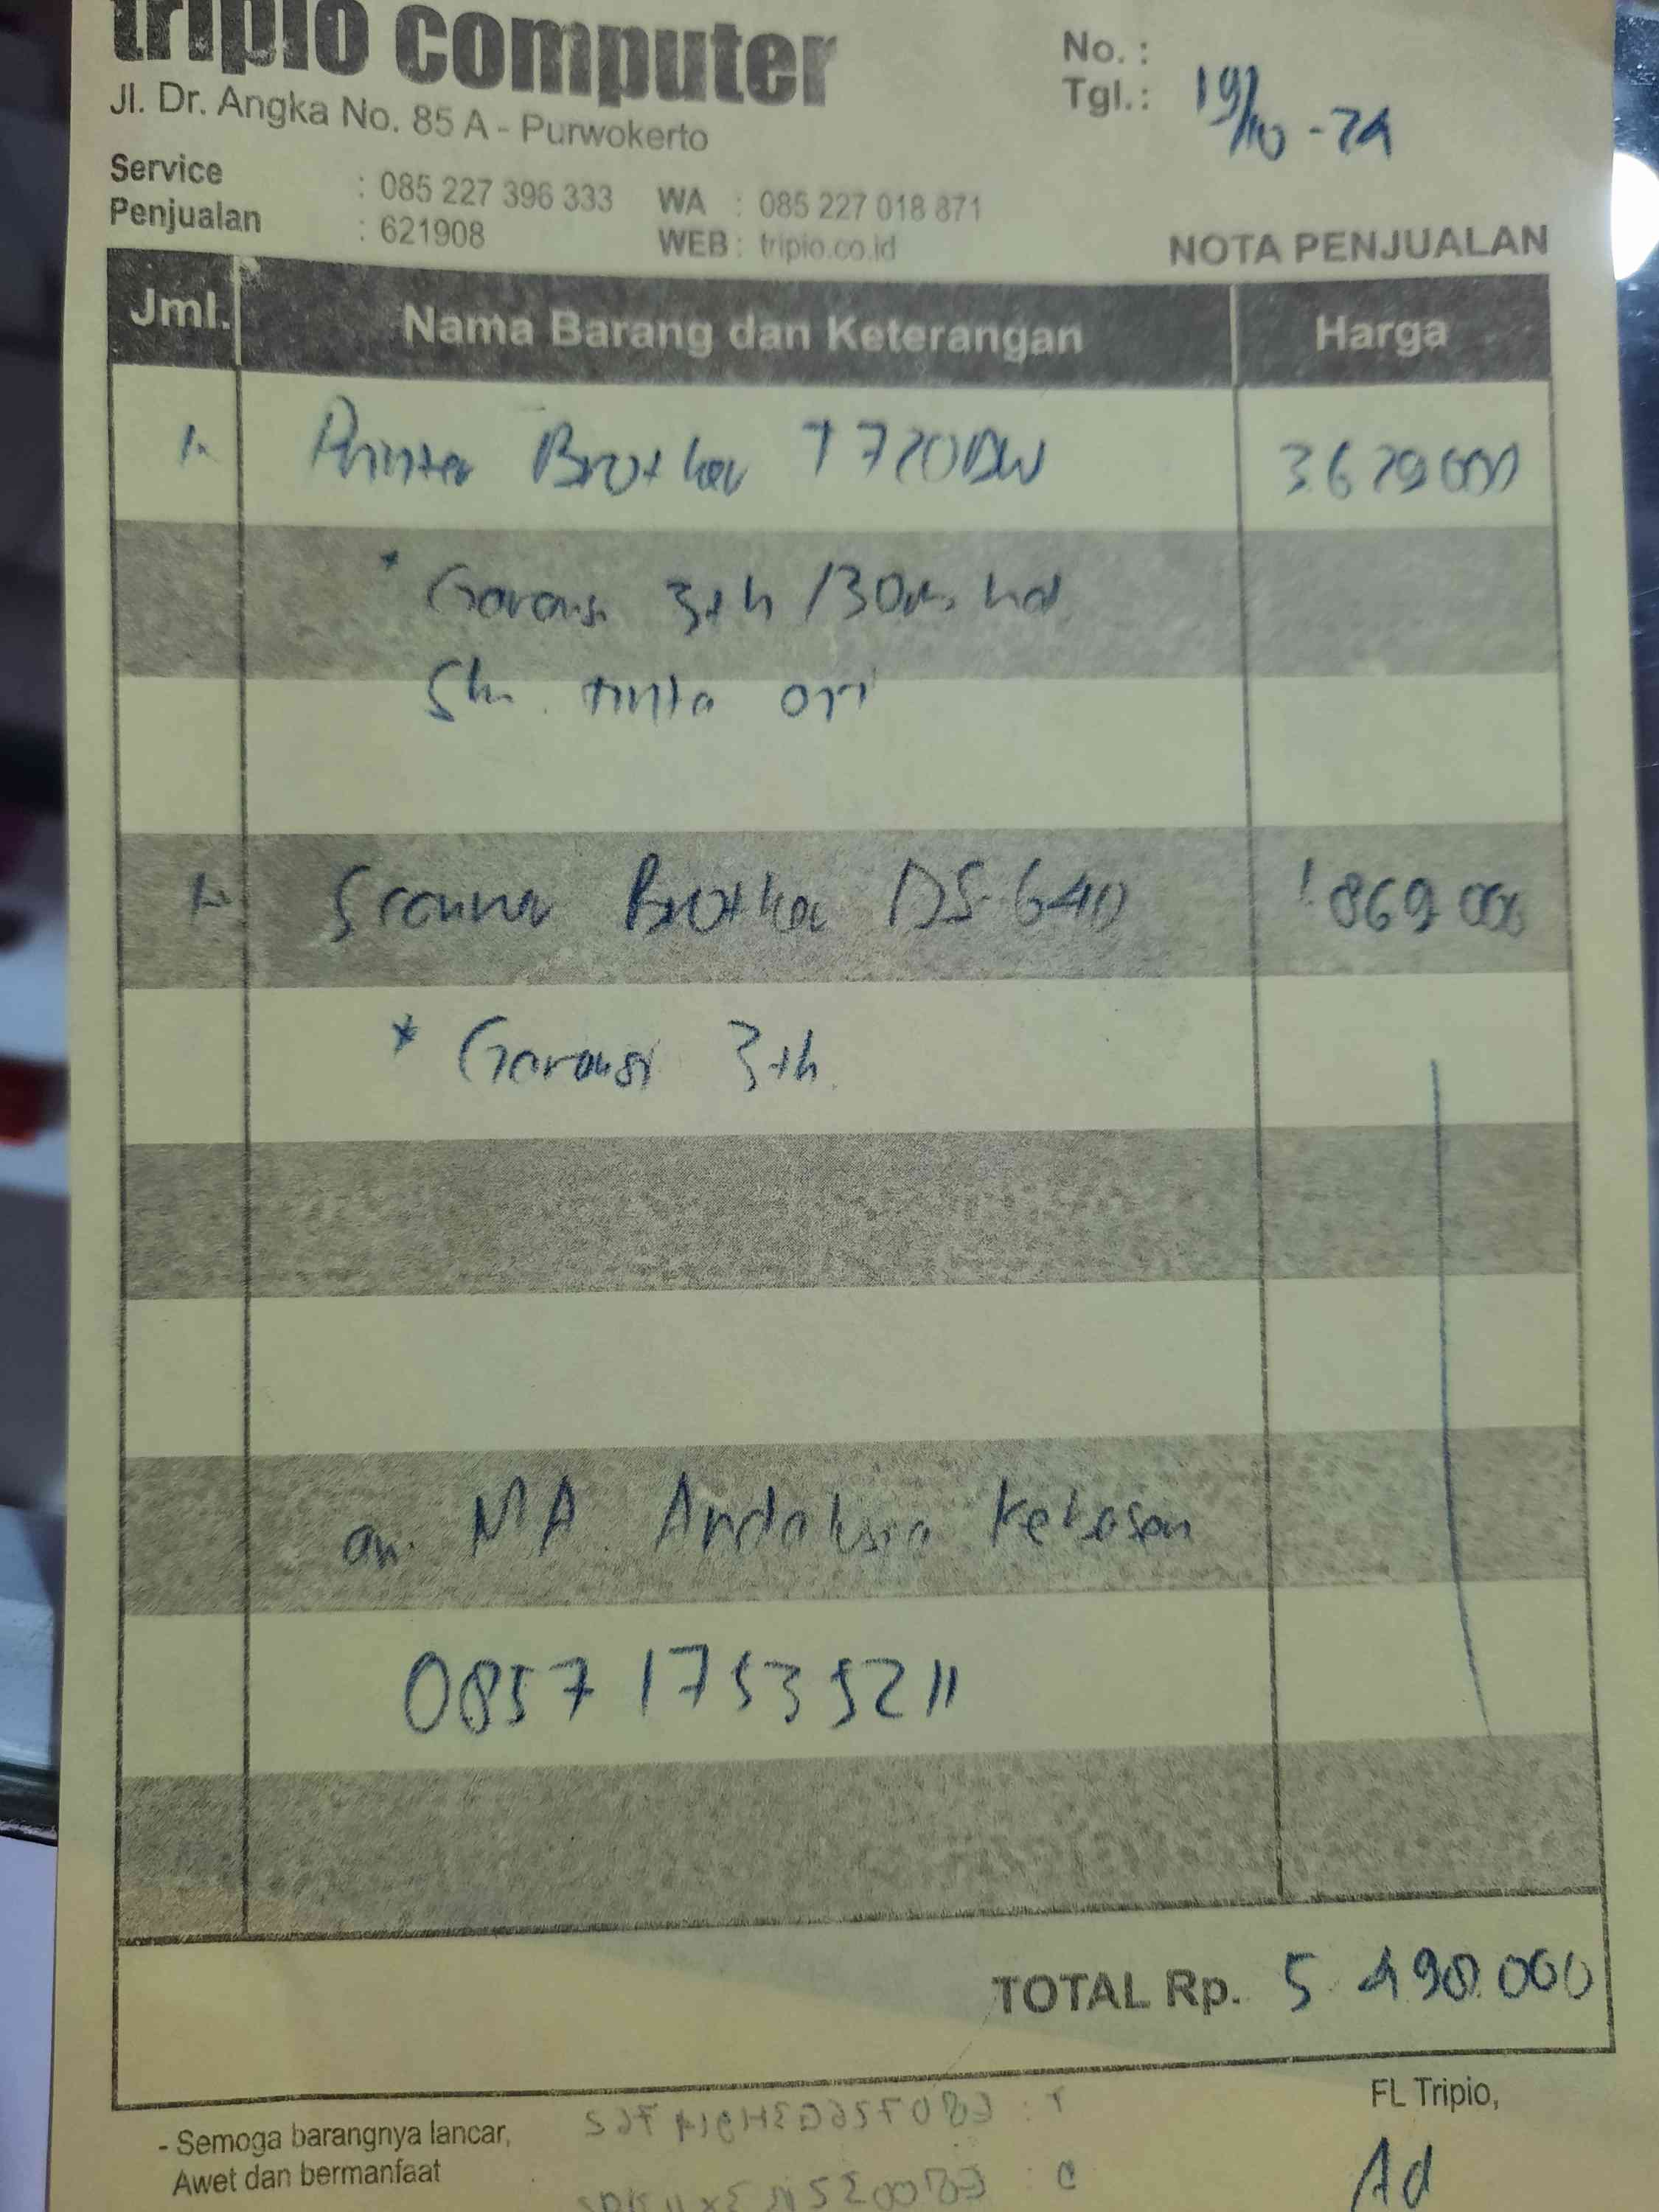 tripio computer
Jl. Dr. Angka No. 85 A - Purwokerto
No. :
Tgl.: 19/10 - 24
Service : 085 227 396 333 WA : 085 227 018 871
Penjualan : 621908 WEB : tripio.co.id
NOTA PENJUALAN
Jml. Nama Barang dan Keterangan Harga
1. Printer Brother T720DW 3629000
* Garansi 3th /30rb hal
tinta ori
1. Scanner Brother DS-640 1869000
* Garansi 3th
an. MA. Andalusia Kebasen
0857 1753 5211
TOTAL Rp. 5.498.000
FL Tripio,
- Semoga barangnya lancar,
Awet dan bermanfaat
Ad